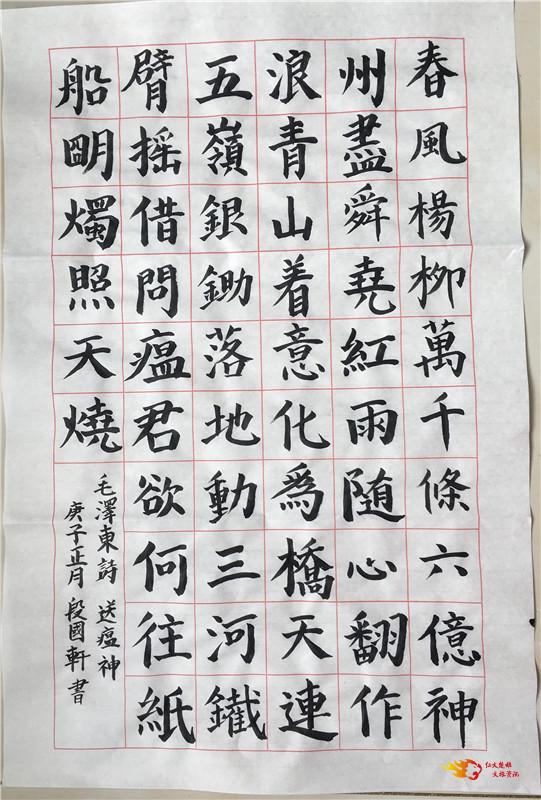 春風楊柳萬千條六億神
州盡舜堯紅雨随心翻作
浪青山着意化爲橋天連
五嶺銀鋤落地動三河鐵
臂摇借問瘟君欲何往紙
船明燭照天燒
毛澤東詩 送瘟神
庚子正月 段國軒書
楚雄
文旅资讯